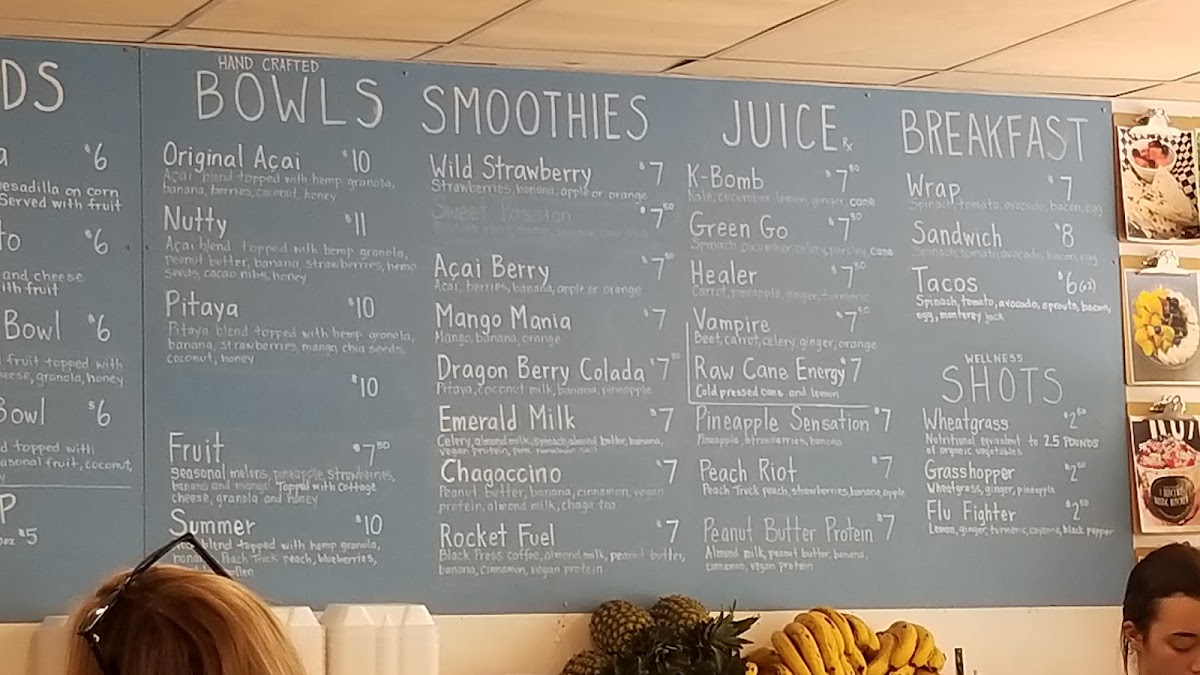 DS
a $6
esadilla on corn
Served with fruit
to $6
and cheese
ith fruit
Bowl $6
fruit topped with
eese, granola, honey
Bowl $6
d topped with
asonal fruit, coconut,
P
oz $5
HAND CRAFTED
BOWLS
Original Açai $10
Açai blend topped with hemp granola,
banana, berries, coconut, honey
Nutty $11
Açai blend topped with hemp granola,
peanut butter, banana, strawberries, hemp
seeds, cacao nibs, honey
Pitaya $10
Pitaya blend topped with hemp granola,
banana, strawberries, mango, chia seeds,
coconut, honey
$10
Fruit $7.50
Seasonal melons, pineapple, strawberries,
banana and mango. Topped with cottage
cheese, granola and honey
Summer $10
blend topped with hemp granola,
Peach Truck peach, blueberries,
SMOOTHIES
Wild Strawberry $7
Strawberries, banana, apple or orange
Sweet Passion $7.50
Açai Berry $7.50
Açai, berries, banana, apple or orange
Mango Mania $7
Mango, banana, orange
Dragon Berry Colada $7.50
Pitaya, coconut milk, banana, pineapple
Emerald Milk $7
Celery, almond milk, spinach, almond butter, banana,
vegan protein, pink Himalayan salt
Chagaccino $7
Peanut butter, banana, cinnamon, vegan
protein, almond milk, chaga tea
Rocket Fuel $7
Black Press coffee, almond milk, peanut butter,
banana, cinnamon, vegan protein
JUICE Rx
K-Bomb $7.50
Kale, cucumber, lemon, ginger, cane
Green Go $7.50
Spinach, cucumber, celery, parsley, cane
Healer $7.50
Carrot, pineapple, ginger, turmeric
Vampire $7.50
Beet, carrot, celery, ginger, orange
Raw Cane Energy $7
Cold pressed cane and lemon
Pineapple Sensation $7
Pineapple, strawberries, banana
Peach Riot $7
Peach Truck peach, strawberries, banana, apple
Peanut Butter Protein $7
Almond milk, peanut butter, banana,
cinnamon, vegan protein
BREAKFAST
Wrap $7
Spinach, tomato, avocado, bacon, egg
Sandwich $8
Spinach, tomato, avocado, bacon, egg
Tacos $6 (x2)
Spinach, tomato, avocado, sprouts, bacon,
egg, monterey jack
WELLNESS
SHOTS
Wheatgrass $2.50
Nutritional equivalent to 2.5 POUNDS
of organic vegetables
Grasshopper $2.50
Wheatgrass, ginger, pineapple
Flu Fighter $2.50
Lemon, ginger, turmeric, cayenne, black pepper